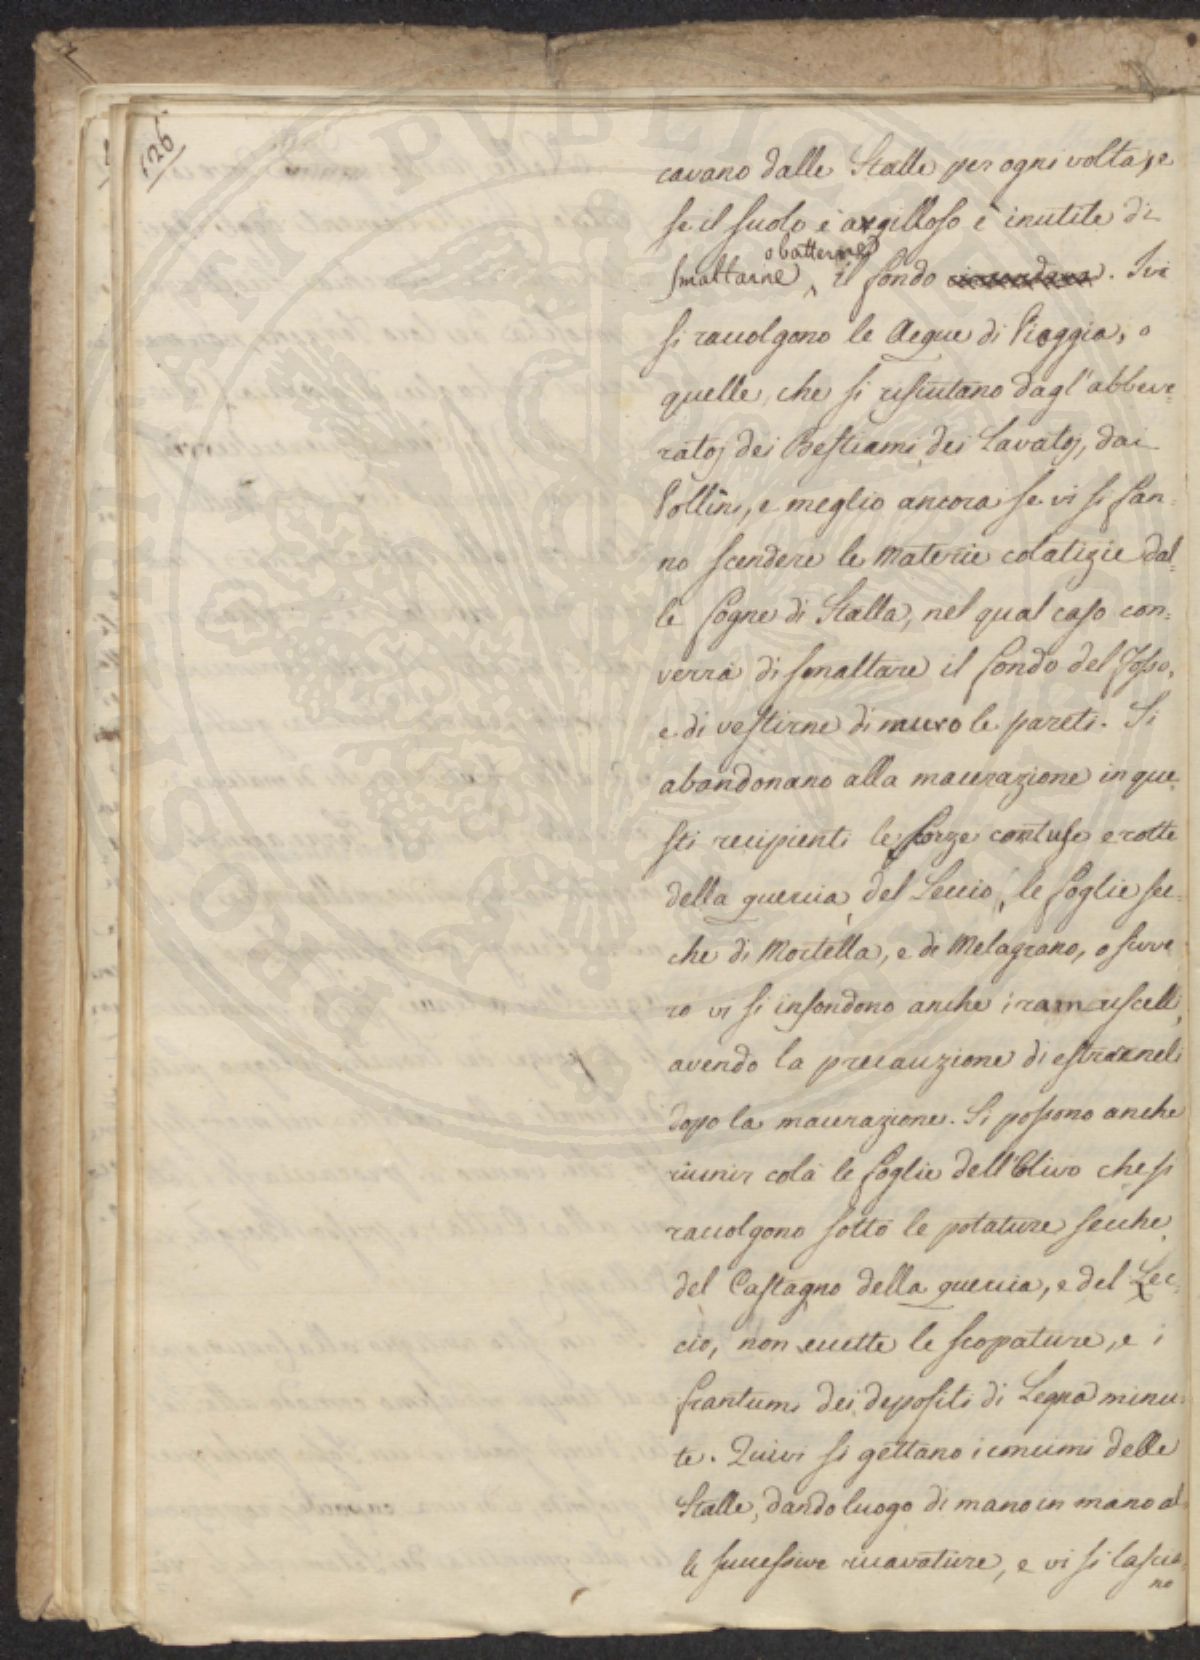 126
cavano dalle Stalle per ogni volta, e
se il suolo è argilloso è inutile di
smaltarne o batterne il fondo. Ivi
si raccolgono le Acque di Pioggia, o
quelle, che si rifiutano dagl'abbeve=
ratoj dei Bestiami, dei Lavatoj, dai
Pollini, e meglio ancora se vi si fan=
no scendere le materie colatizie dal=
le fogne di Stalla, nel qual caso con=
verrà di smaltare il fondo del fosso,
e di vestirne di muro le pareti. Si
abandonano alla macerazione in que=
sti recipienti le scorze contuse e rotte
della quercia, del Leccio, le foglie sec=
che di Mortella, e di Melagrano, o sivve=
ro vi si infondono anche i ramuscelli,
avendo la precauzione di estrarneli
dopo la macerazione. Si possono anche
riunir colà le foglie dell'Olivo che si
raccolgono sotto le potature secche,
del Castagno della quercia, e del Lec=
cio, non eccette le scopature, e i
frantumi dei depositi di Legna minu=
te. Quivi si gettano i concimi delle
Stalle, dando luogo di mano in mano al=
le successive ricavature, e vi si lascia=
no